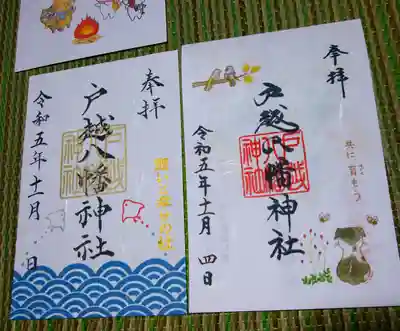 奉拝
戸越八幡神社
令和五年十一月 日
戸越
八幡
神社
奉拝
戸越八幡神社
令和五年十一月 四日
戸越
八幡
神社
共に育もう